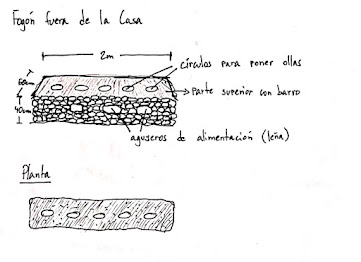 Fogón fuera de la Casa
2m
círculos para poner ollas
60cm
Parte superior con barro
40cm
agujeros de alimentación (leña)
Planta